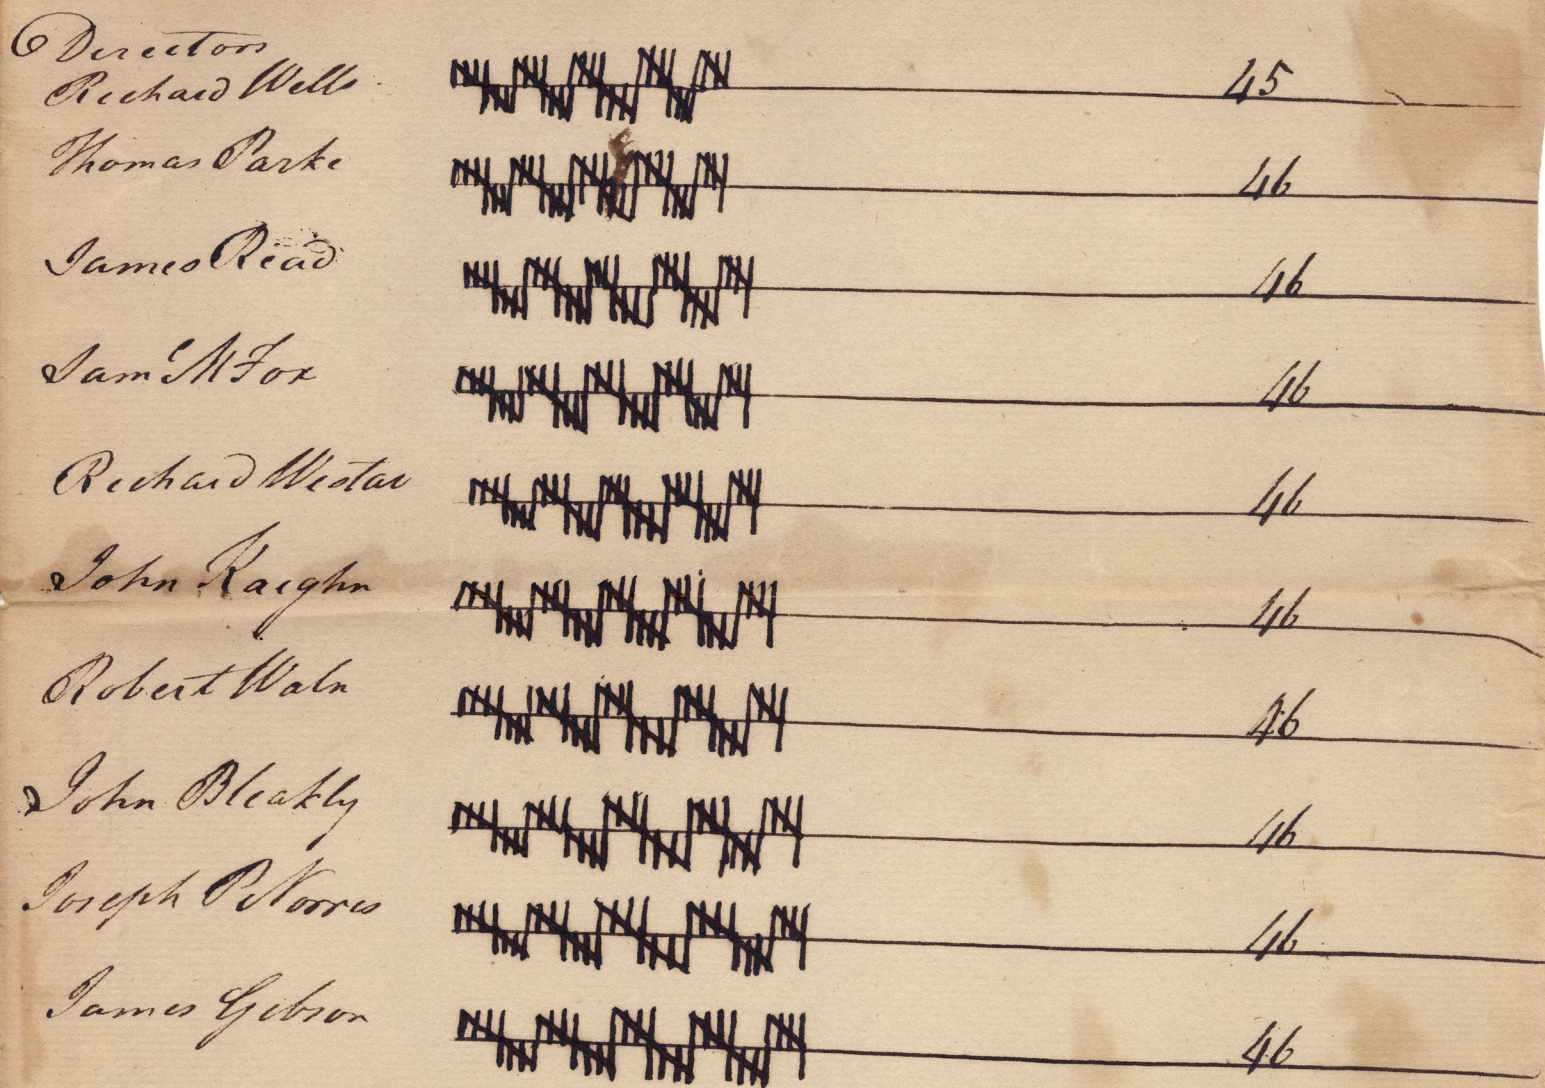 Directors
Richard Wells 45
Thomas Parke 46
James Read 46
Saml M Fox 46
Richard Wistar 46
John Kaighn 46
Robert Waln 46
John Bleakly 46
Joseph P Norris 46
James Gibson 46